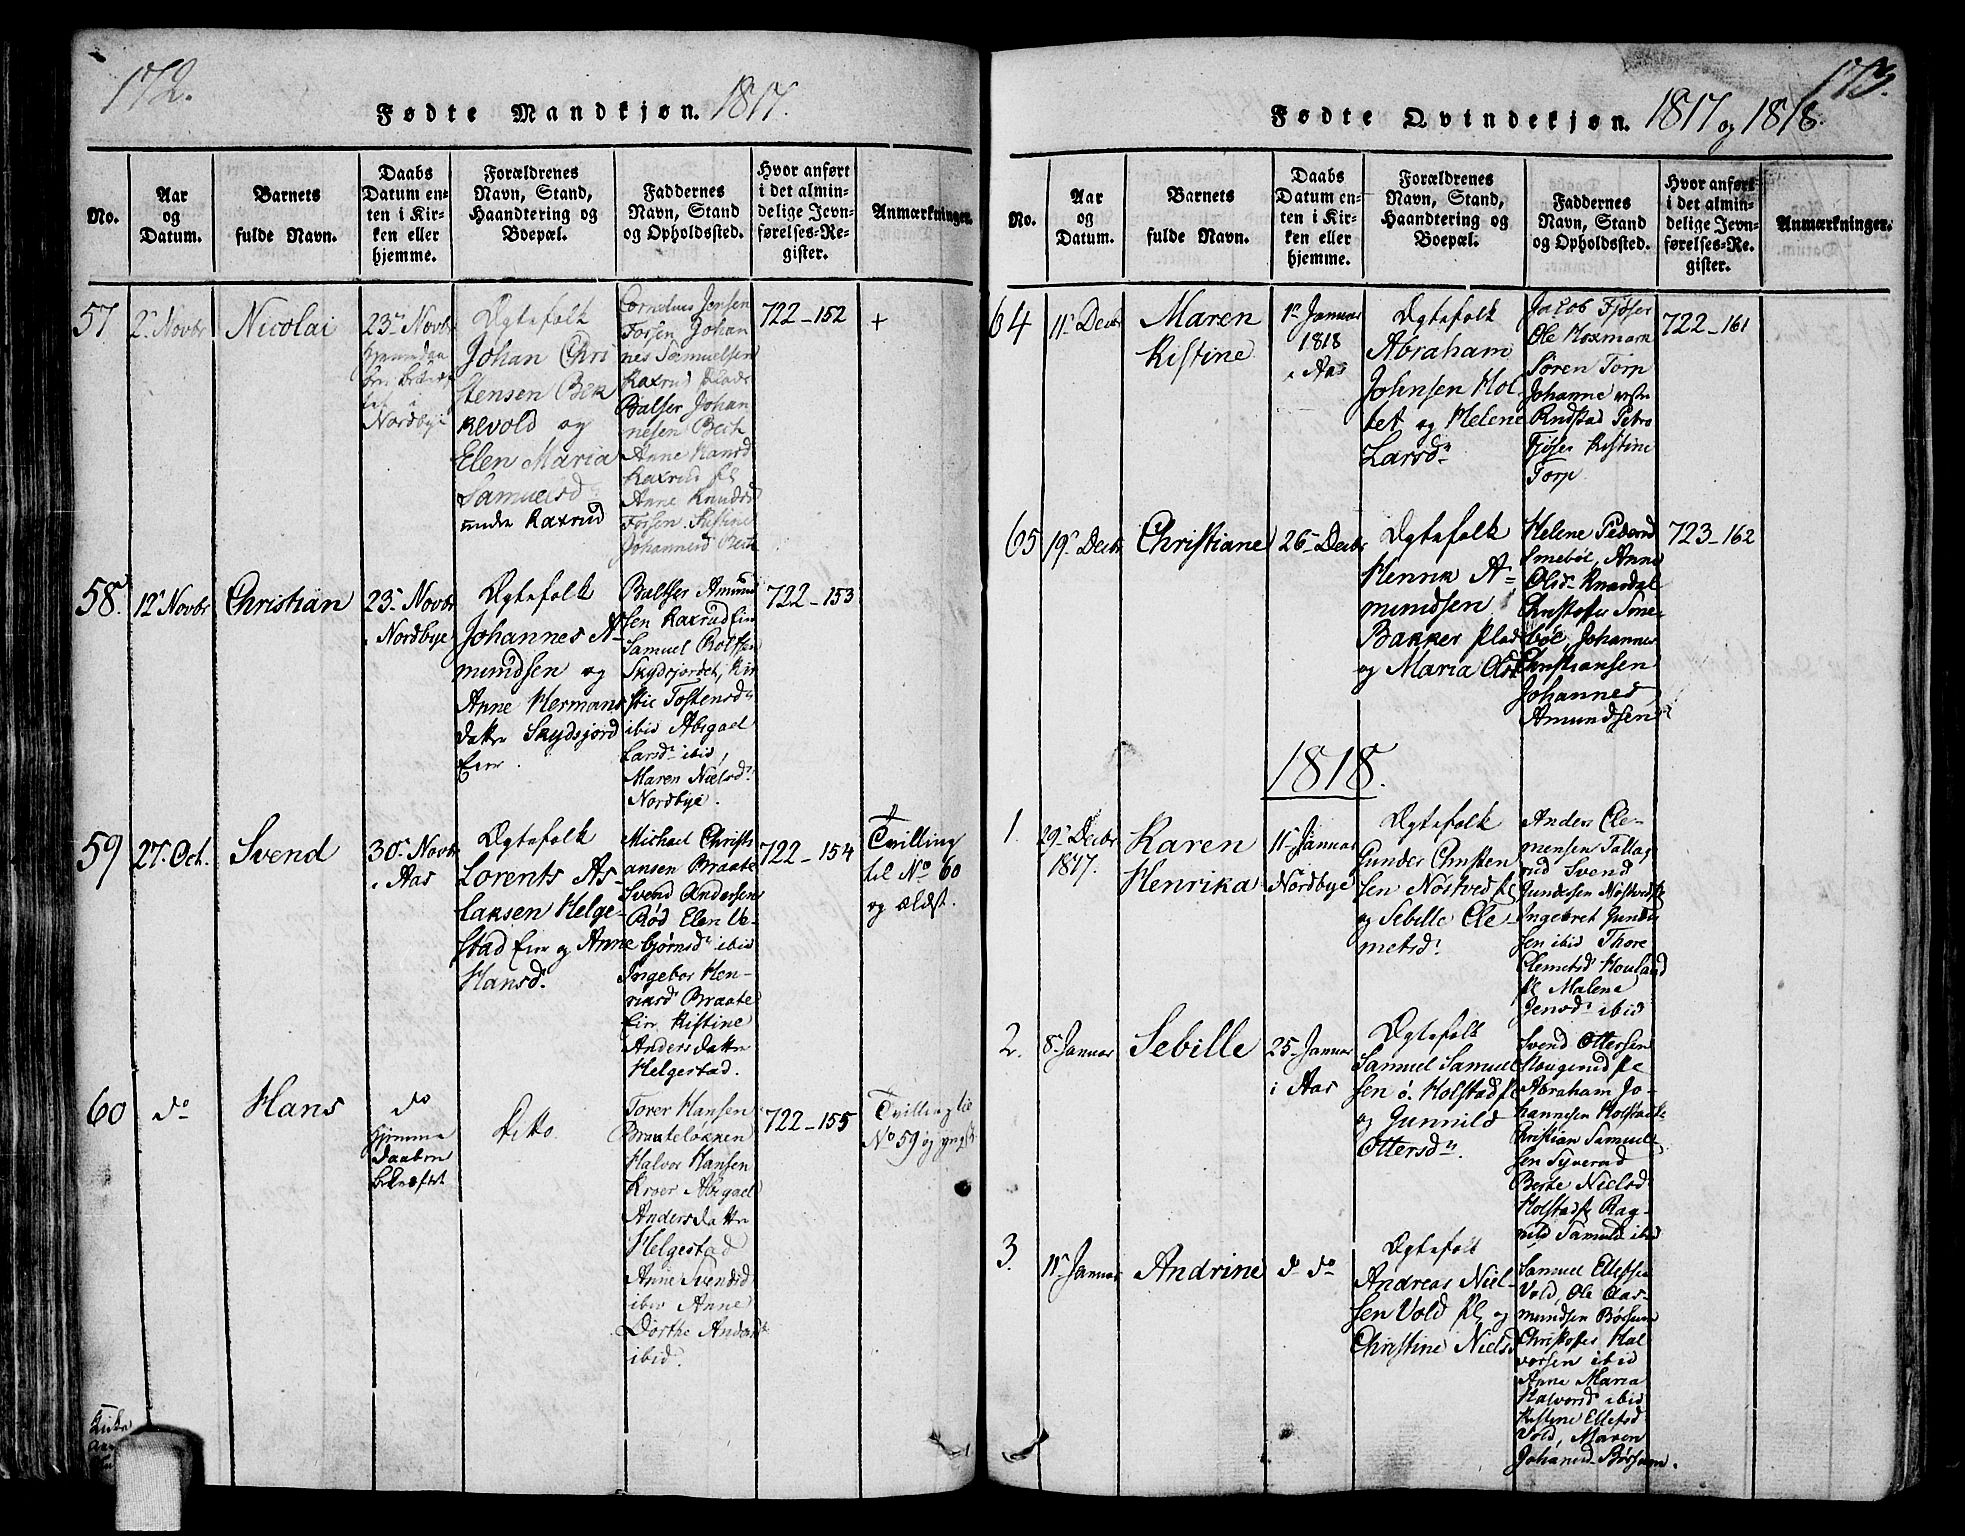 172.
Fødte Mandkjøn. 1817.
No.
Aar
og
Datum.
Barnets
fulde Navn.
Daabs
Datum en-
ten i Kir-
ken eller
hjemme.
Forældrenes
Navn, Stand,
Haandtering og
Boepæl.
Faddernes
Navn, Stand
og Opholdssted.
Hvor anført
i det almin-
delige Jevn-
førelses-Re-
gister.
Anmærkninger.
57
2. Novbr
Nicolai
23 Novbr
Nordbye
Ægtefolk
Johan Chri
stensen Bek
kevold og
Elen Maria
Samuelsd
Kaxrud
Cornelius Jensen
Forsen Johan
nes Samuelsen
Kaxrud
Balser Johan
nesen Beck
Anne Hansd
Kaxrud
Anne Knudsd
Forsen
Johannesd
722-152
+
58.
12 Novbr
Christian
23 Novbr
i Nordbye
Ægtefolk
Johannes A-
mundsen og
Anne Hermans
datter Skydsjord
Eier.
Baltser Amund
sen Kaxrud Eier
Samuel Rolfsen
Skydsjordet, Kir
stie Tostensd
ibid Abigael
Larsd ibid,
Maren Nielsd
Nordbye.
722-153
59
27. Oct.
Svend
30 Novbr
i Aas
Ægtefolk
Lorents As-
laksen Helge-
stad Eier og Anne
Hansd.
Michael Christi
ansen Braate
Svend Andersen
Rød Elen Ve-
bjørnsd ibid
Ingebor Hen-
riksd Braate
Eier Kistine
Andersdatter
Helgestad.
722-154
+
Tvilling
til No 60
og ældst.
60
do
Hans
do
hjemme
daaben
bekræftet
Ditto.
Torer Hansen
Braateløkken
Halvor Hansen
Kroer Abigael
Andersdatter
Helgestad
Anne Svendsd
ibid Anne
Dorthe Andersd
ibid.
722-155
Tvilling til
No 59 og yngst
173.
Fødte Qvindekjøn. 1817 og 1818.
No.
Aar
og
Datum.
Barnets
fulde Navn.
Daabs
Datum en-
ten i Kir-
ken eller
hjemme.
Forældrenes
Navn, Stand,
Haandtering og
Boepæl.
Faddernes
Navn, Stand
og Opholdssted.
Hvor anført
i det almin-
delige Jevn-
førelses-Re-
gister.
Anmærkninger.
64
11 Decbr
Maren
Kistine
1 Januar
1818
i Aas
Ægtefolk
Abraham
Johnsen Hol-
tet og Helene
Larsd
Jacob Fjøser
Ole Moxmark
Søren Torp
Johanne
Rudstad Petro
Fjøser Kistine
Torp
722-161
65
19 Decbr
Christiane
26 Decbr
Ægtefolk
Henrik A-
mundsen
Bakker Plad
og Maria Olsd
Helene Pedersd
Smebøl, Anne
Olsd Knardal
Christofer Sme-
bøl, Johannes
Christiansen
Johannes
Amundsen
723-162
1818.
1.
29 Decbr
1817.
Karen
Henrika
11 Januar
Nordbye
Ægtefolk
Gunder Christen
sen Nøstved
og Sebille Cle-
metsd
Anders Cle-
mensen Tallag
rud Svend
Gundersen Nøstved
Ingebret Gunder
sen ibid Thore
Clemetsd Houland
pl Malene
Jensd ibid
2.
8 Januar
Sebille
25 Januar
i Aas
Ægtefolk
Samuel Samuel
sen ø. Holstad pl
og Gunnild
Ottersd.
Svend Ottersen
Haugerud pl
Abraham Jo-
hannesen Holstad
Christian Samuel
sen Syverud
Berte Nielsd
Holstad Rag-
nild Samuelsd ibid
3.
11 Januar
Andrine
do do
Ægtefolk
Andreas Niel-
sen Vold pl og
Christine Nielsd
Samuel Ellefsen
Vold, Ole Aas-
mundsen Børsum
Christofer Hal
vorsen ibid
Anne Maria
Halvorsd ibid
Kistine Ellefsd
Vold, Maren
Johansd Børsum.